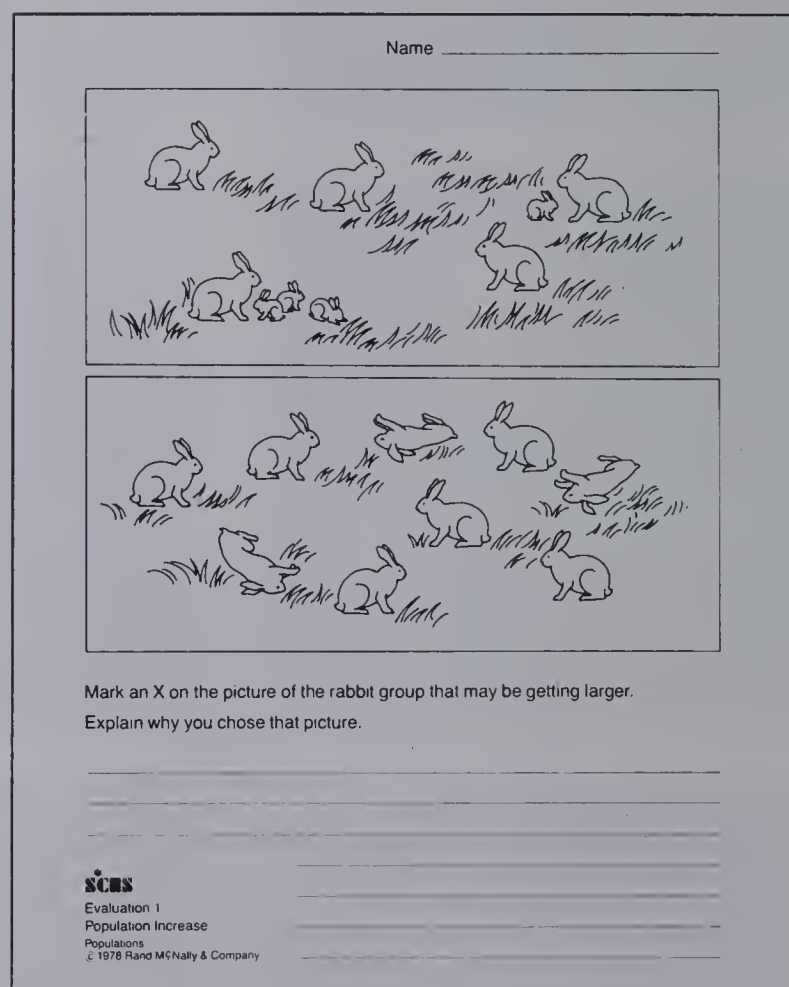 Name
Mark an X on the picture of the rabbit group that may be getting larger.
Explain why you chose that picture.
SCIIS
Evaluation 1
Population Increase
Populations
© 1978 Rand McNally & Company